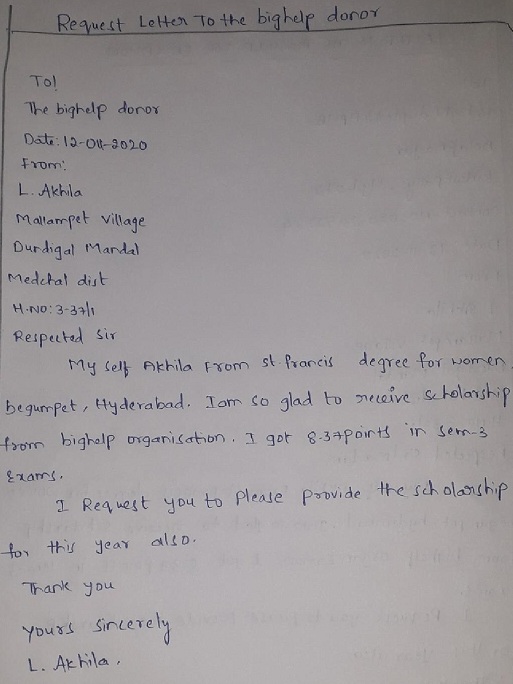 Request Letter To the bighelp donor
To!
The bighelp donor
Date: 12-04-2020
From:
L. Akhila
Mallampet village
Dundigal Mandal
Medchal dist
H.NO: 3-37/1
Respected Sir
My self Akhila From st francis degree for women
begumpet, Hyderabad. Iam so glad to receive scholarship
from bighelp organisation. I got 8.37points in sem-3
Exams.
I Request you to please provide the scholarship
for this year also.
Thank you
yours sincerely
L. Akhila.